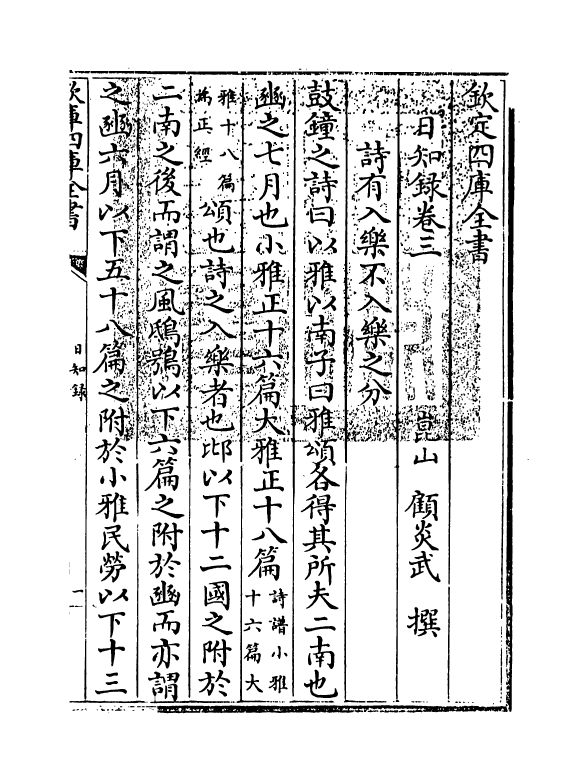 欽定四庫全書
日知録卷三
崑山 顧炎武 撰
詩有入樂不入樂之分
鼓鐘之詩曰以雅以南子曰雅頌各得其所夫二南也
豳之七月也小雅正十六篇大雅正十八篇詩譜小雅十六篇大
雅十八篇為正經頌也詩之入樂者也邶以下十二國之附於
二南之後而謂之風鴟鴞以下六篇之附於豳而亦謂
之豳六月以下五十八篇之附於小雅民勞以下十三
欽定四庫全書
日知録
一